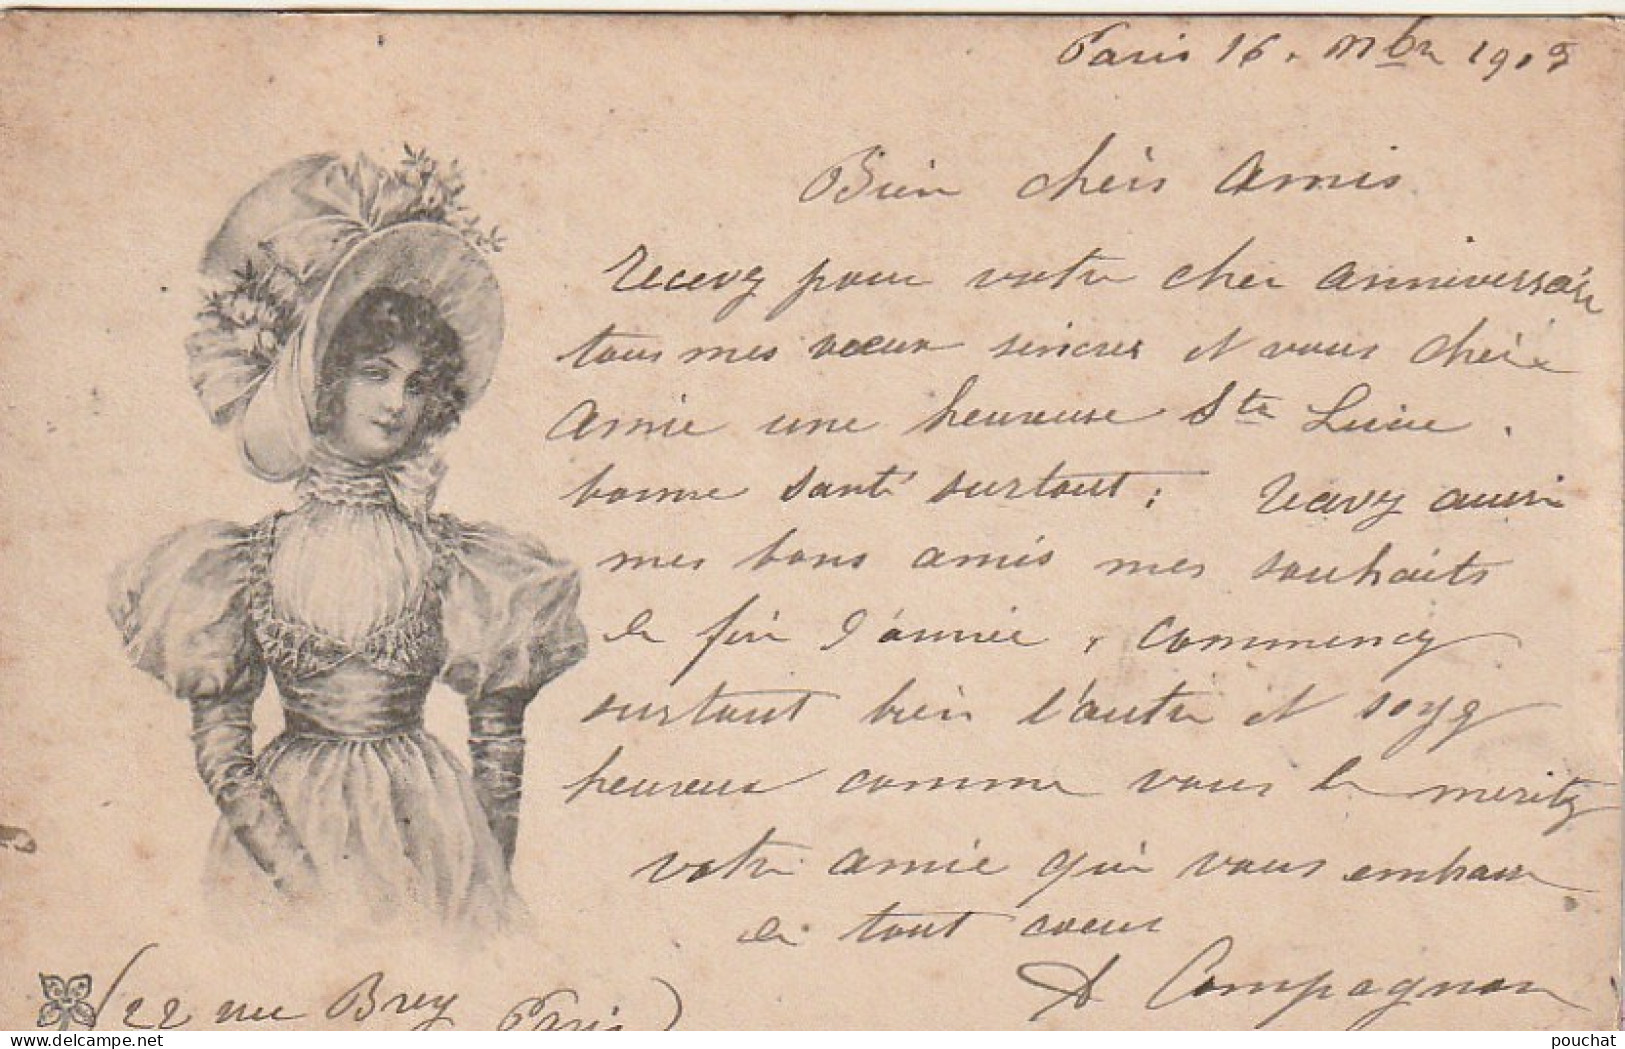 Paris 16. Xbre 1903
Bien chèrs Amis
Recevez pour votre cher anniversaire
tous mes voeux sincères et vous chère
Amie une heureuse Ste Lucie.
bonne santé surtout; recevez aussi
mes bons amis mes souhaits
de fin d'année, commencez
surtout bien l'autre et soyez
heureux comme vous le méritez
votre amie qui vous embrasse
de tout coeur
A Compagnon
(22 rue Brey Paris)
delcampe.net
pouchat